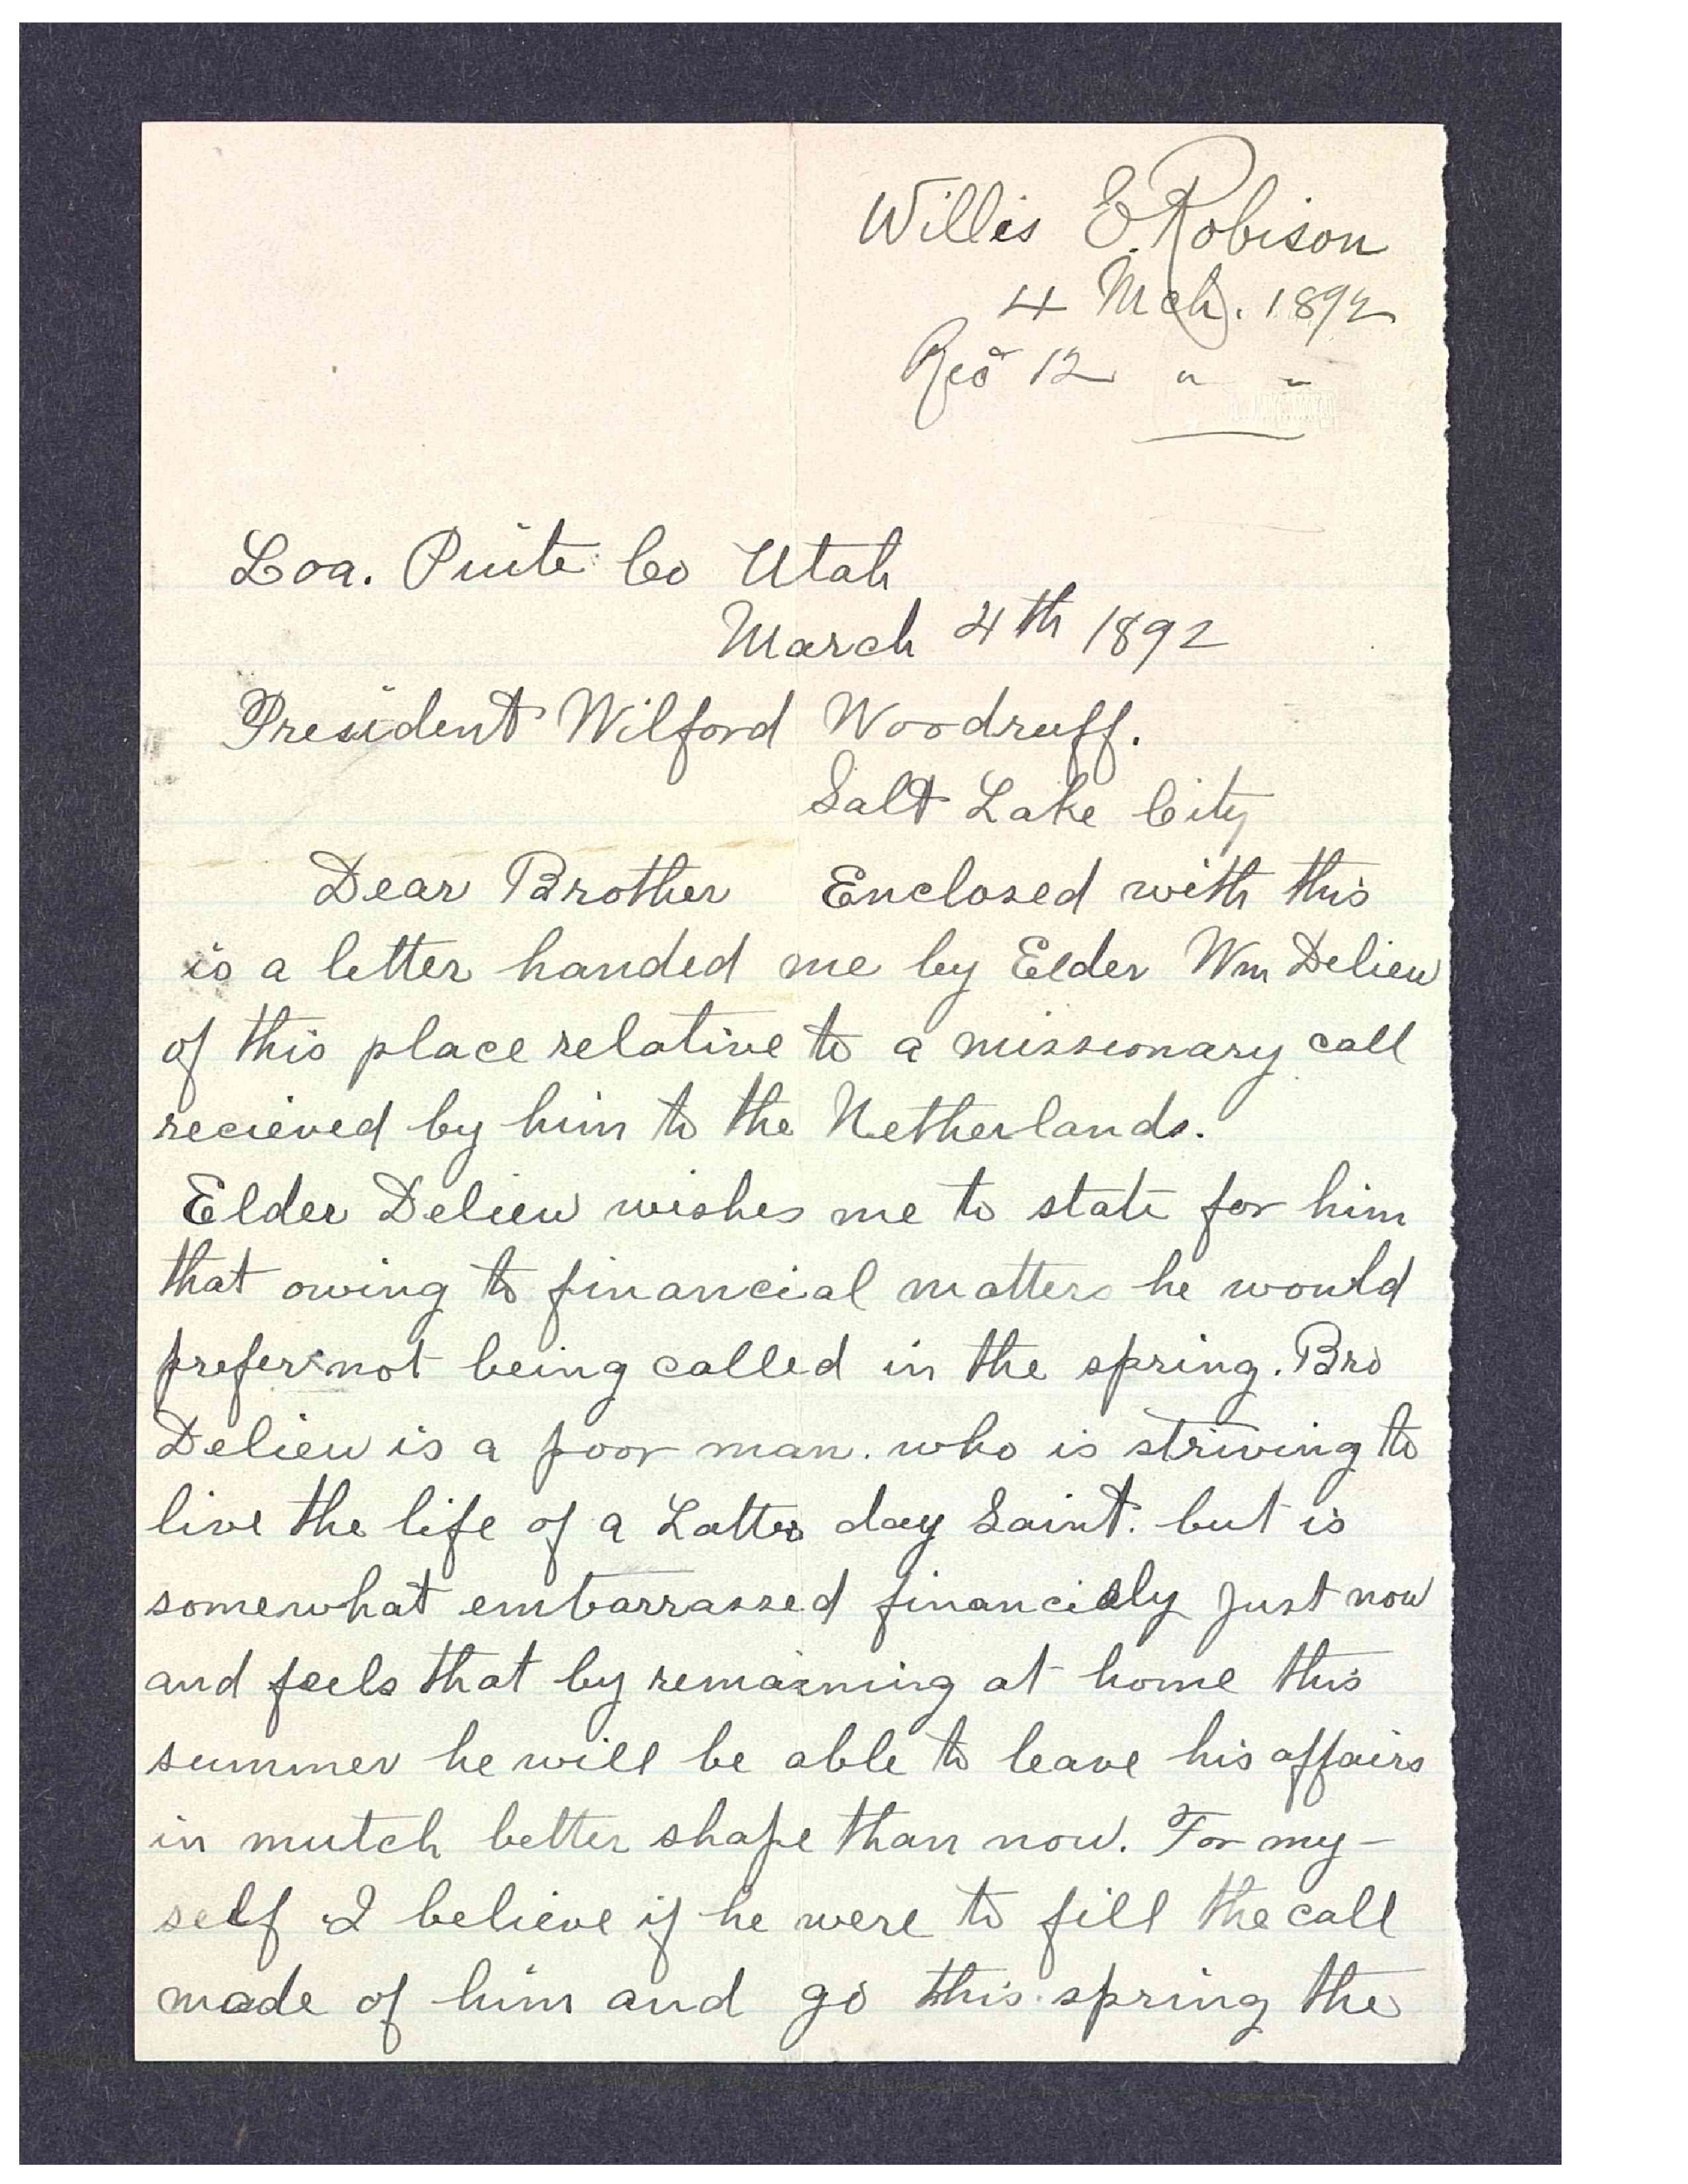 Willis E. Robison
4 Mch. 1892
Recd 12 " "
Loa. Puite Co Utah
March 4th 1892
President Wilford Woodruff.
Salt Lake City
Dear Brother Enclosed with this
is a letter handed me by Elder Wm Delieu
of this place relative to a missionary call
recieved by him to the Netherlands.
Elder Delieu wishes me to state for him
that owing to financial matters he would
prefer not being called in the spring. Bro
Delieu is a poor man. who is striving to
live the life of a Latter day Saint. but is
somewhat embarrassed financialy just now
and feels that by remaining at home this
summer he will be able to leave his affairs
in mutch better shape than now. For my-
self I believe if he were to fill the call
made of him and go this spring the